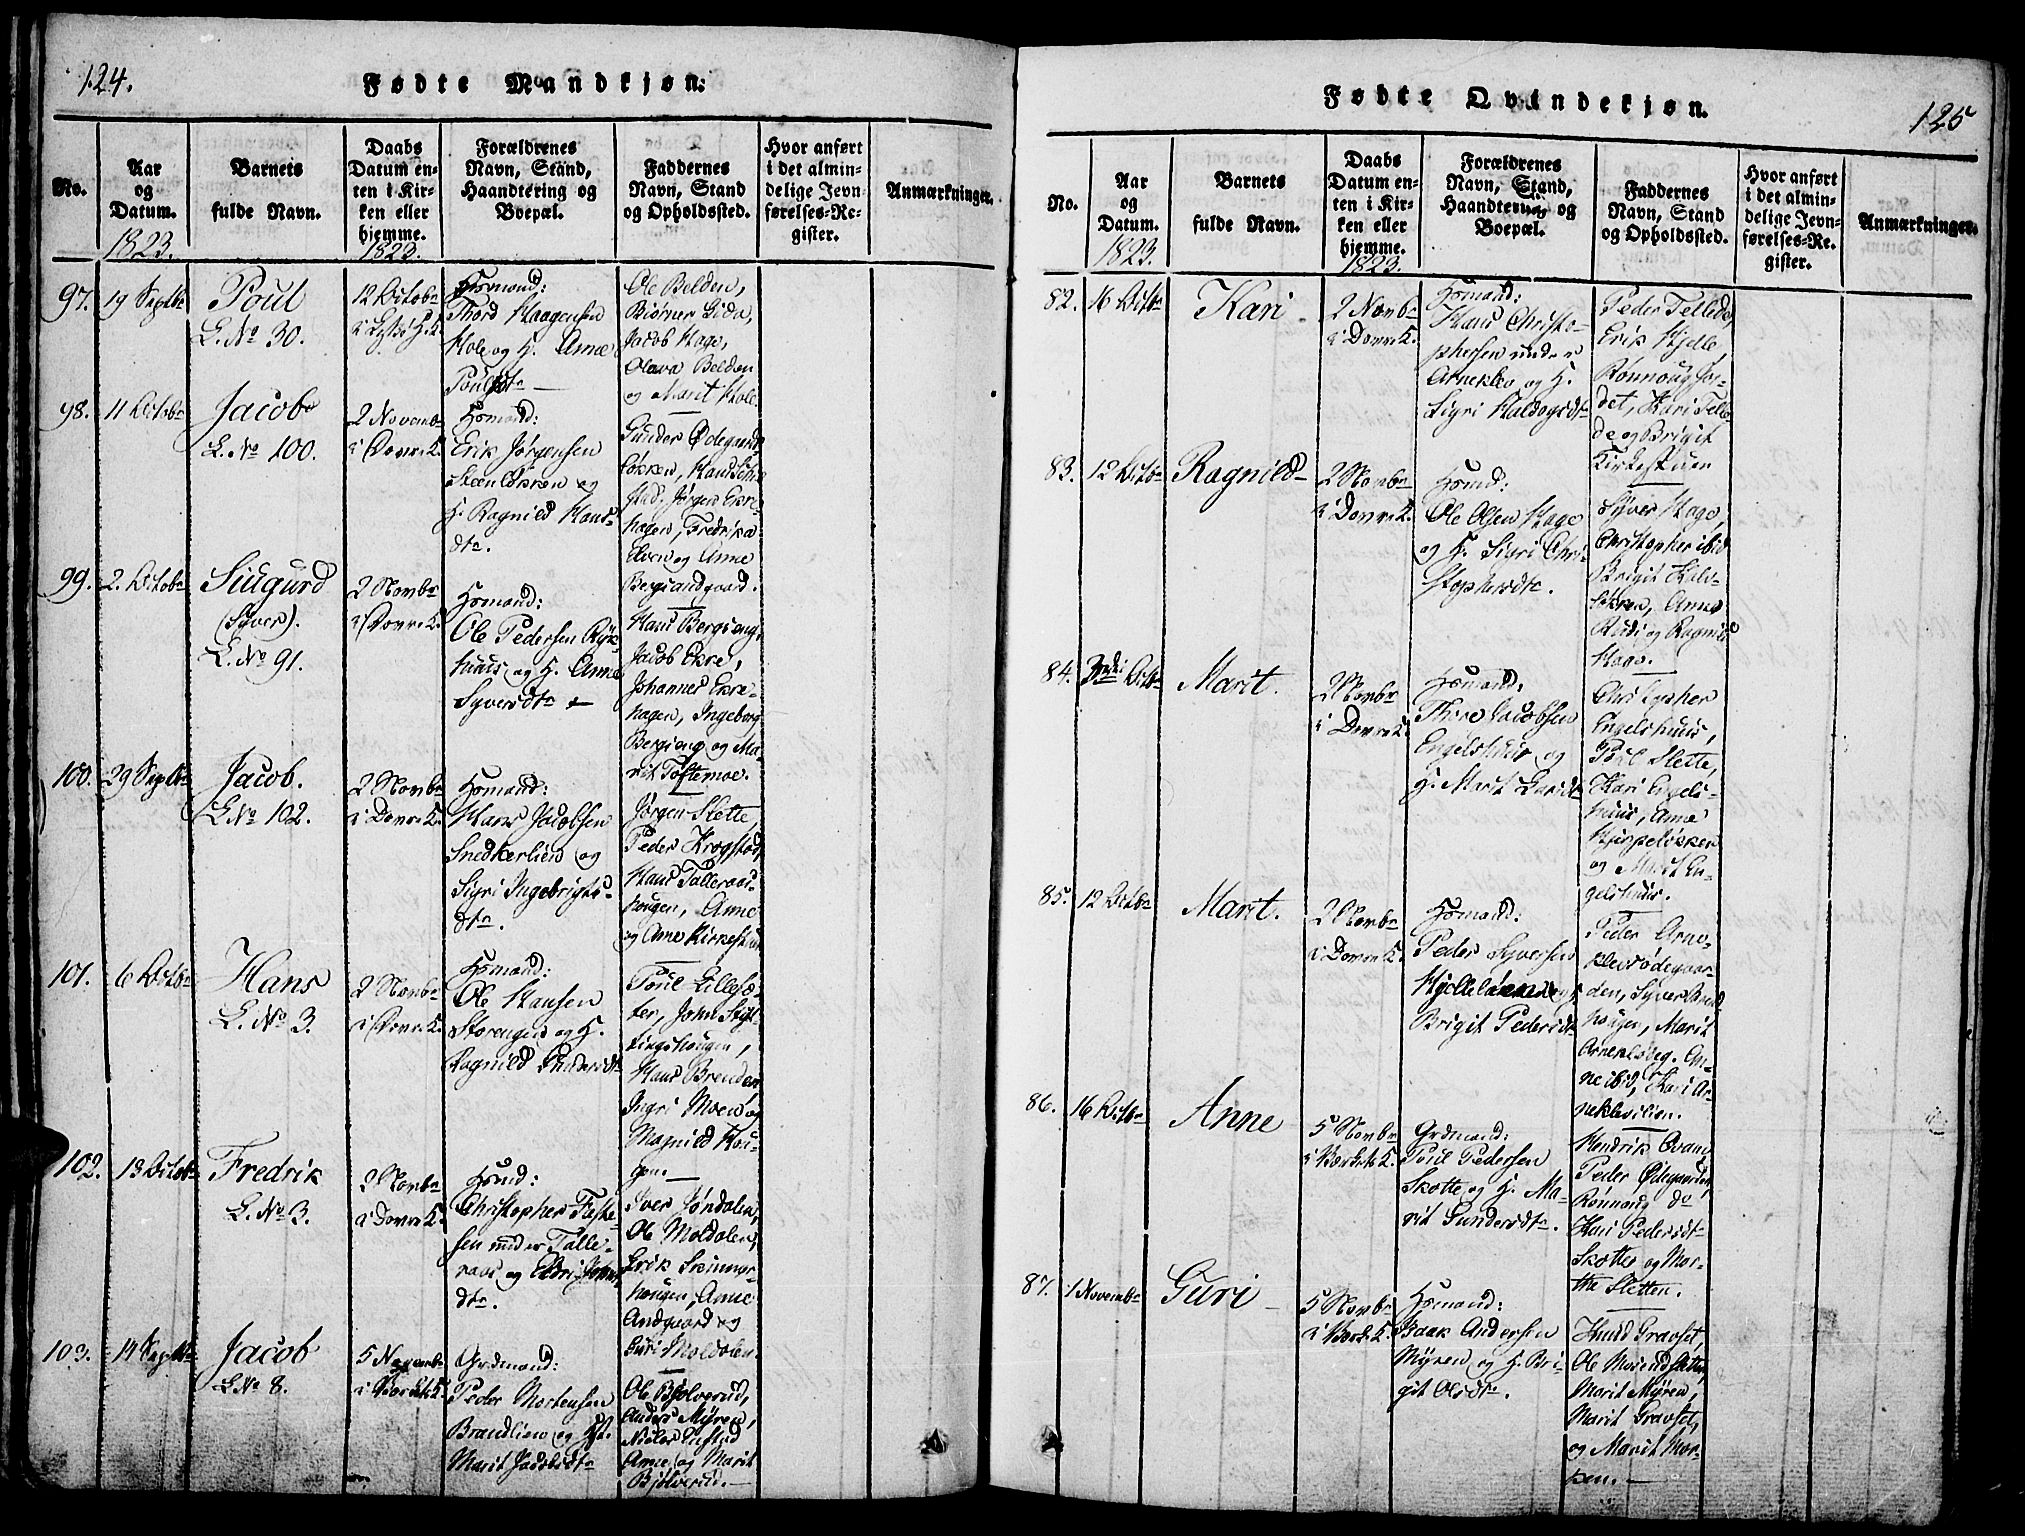 124.
Fødte Mandkjøn:
No.
Aar
og
Datum.
1823.
Barnets
fulde Navn.
Daabs
Datum en-
ten i Kir-
ken eller
hjemme.
1823.
Forældrenes
Navn, Stand,
Haandtering og
Boepæl.
Faddernes
Navn, Stand
og Opholdssted.
Hvor anført
i det almin-
delige Jevn-
førelses-Re-
gister.
Anmærkninger.
97.
19 Septbr
Poul
L. No 30.
12 Octobr
Hsmand:
Thord Haagensen
Hole og H. Anne
Poulsdtr
Ole Belden,
Biørner Lida,
Jacob Hage,
Olava Belden
og Marit Hole
98.
11 Octobr
Jacob
L. No 100.
2 Novembr
i Dovre K.
Hsmand:
Erik Jørgensen
Steenløkken og
H. Ragnild Hans-
dtr.
Gunder Ødegaards
løkken, Hans
stad, Jørgen Ekre-
hagen, Fredrika
og Anne
Bergsandgaard.
99.
2. Octobr
Siugurd
(Syver).
L. No 91.
2 Novbr
i Dovre K.
Hsmand:
Ole Pedersen
huus og H. Anne
Syversdtr
Hans Bergseng,
Jacob Ekre,
Johannes Ekre-
hagen, Ingeborg
Bergseng og Ma-
rit Toftemoe.
100.
29 Septbr
Jacob.
L. No 102.
2 Novbr
i Dovre K.
Hsmand:
Hans Jacobsen
Snedkerlien og
Sigri Ingebrigts-
dtr.
Jørgen Slette,
Peder Krogstad,
Hans Talleraas-
hougen, Anne
og Anne Kirkestuen
101.
6 Octobr
Hans
L. No 3.
2 Novbr
i Dovre K.
Hsmand:
Ole Hansen
Storengen og H.
Ragnild
Poul Lillesæ-
ter, John
hougen,
Hans Brenden,
Ingri Moen og
Magnild Hou-
gen.
102.
13 Octobr
Fredrik
L. No 3.
2 Novbr
i Dovre K.
Hsmd:
Christopher
sen under Talle-
raas og Eldri Johns-
dtr.
Iver Jøndalen,
Ole Moldalen,
Erik
hougen, Anne
Andgaard og
Guri Moldalen.
103.
14 Septbr
Jacob
L No 8.
5 Novembr
Grdmand:
Peder Mortensen
Brandlien og Hst.
Marit Jacobsdtr
Ole Bjølverud,
Anders Myren,
Niels
Anne og Marit
Bjølverud.
Fødte Qvindekjøn.
125
No.
Aar
og
Datum.
1823.
Barnets
fulde Navn.
Daabs
Datum en-
ten i Kir-
ken eller
hjemme.
1823.
Forældrenes
Navn, Stand,
Haandtering og
Boepæl.
Faddernes
Navn, Stand
og Opholdssted.
Hvor anført
i det almin-
delige Jevn-
førelses-Re-
gister.
Anmærkninger.
82.
16 Octbr
Kari
2 Novbr
i Dovre K.
Hsmand:
Hans Christo-
phersen under
Arneklev og H.
Sigri Haldogsdtr
Peder Tellede,
Erik Hjelle,
Rønnoug Jor-
det, Kari Telle-
de og Brigit
Kirkestuen
83.
12 Octbr
Ragnild
2 Novbr
i Dovre K.
Hsmd:
Ole Olsen Hage
og H. Sigri Chri-
stophersdtr.
Syver Hage,
Christopher ibid
Brigit
løkken, Anne
Rudi og Ragnild
Hage.
84.
3die Octbr
Marit.
2 Novbr
i Dovre K.
Hsmand:
Thore Jacobsen
Engelshuus og
H. Marit Davidsdtr
Christopher
Engelshuus,
Poul Slette,
Kari Engels-
huus, Anne
Hjerpeløkken
og Marit En-
gelshuus.
85.
12 Octobr
Marit.
2 Novbr
i Dovre K.
Hsmand:
Peder Syversen
Hjelleløkken og H.
Brigit Pedersdtr
Peder Arne-
klevsødegaar-
den, Syver
hougen, Marit
Arneklev. An-
ne ibid, Kari Ar-
neklevslien.
86.
16 Octbr
Anne
5 Novbr
Grdmand:
Poul Pedersen
Skotte og H. Ma-
rit Gundersdtr.
Hendrik
Peder Ødegaarden,
Rønnoug do
Kari Pedersdtr
Skotte og Mor-
the Sletten.
87.
1 Novembr
Guri
5 Novbr
Hsmand:
Isaak Andersen
Myren og H. Bri-
git Olsdtr.
Knud Gravset,
Ole
Marit Myren,
Marit Gravset,
og Marit Mor-
ken.